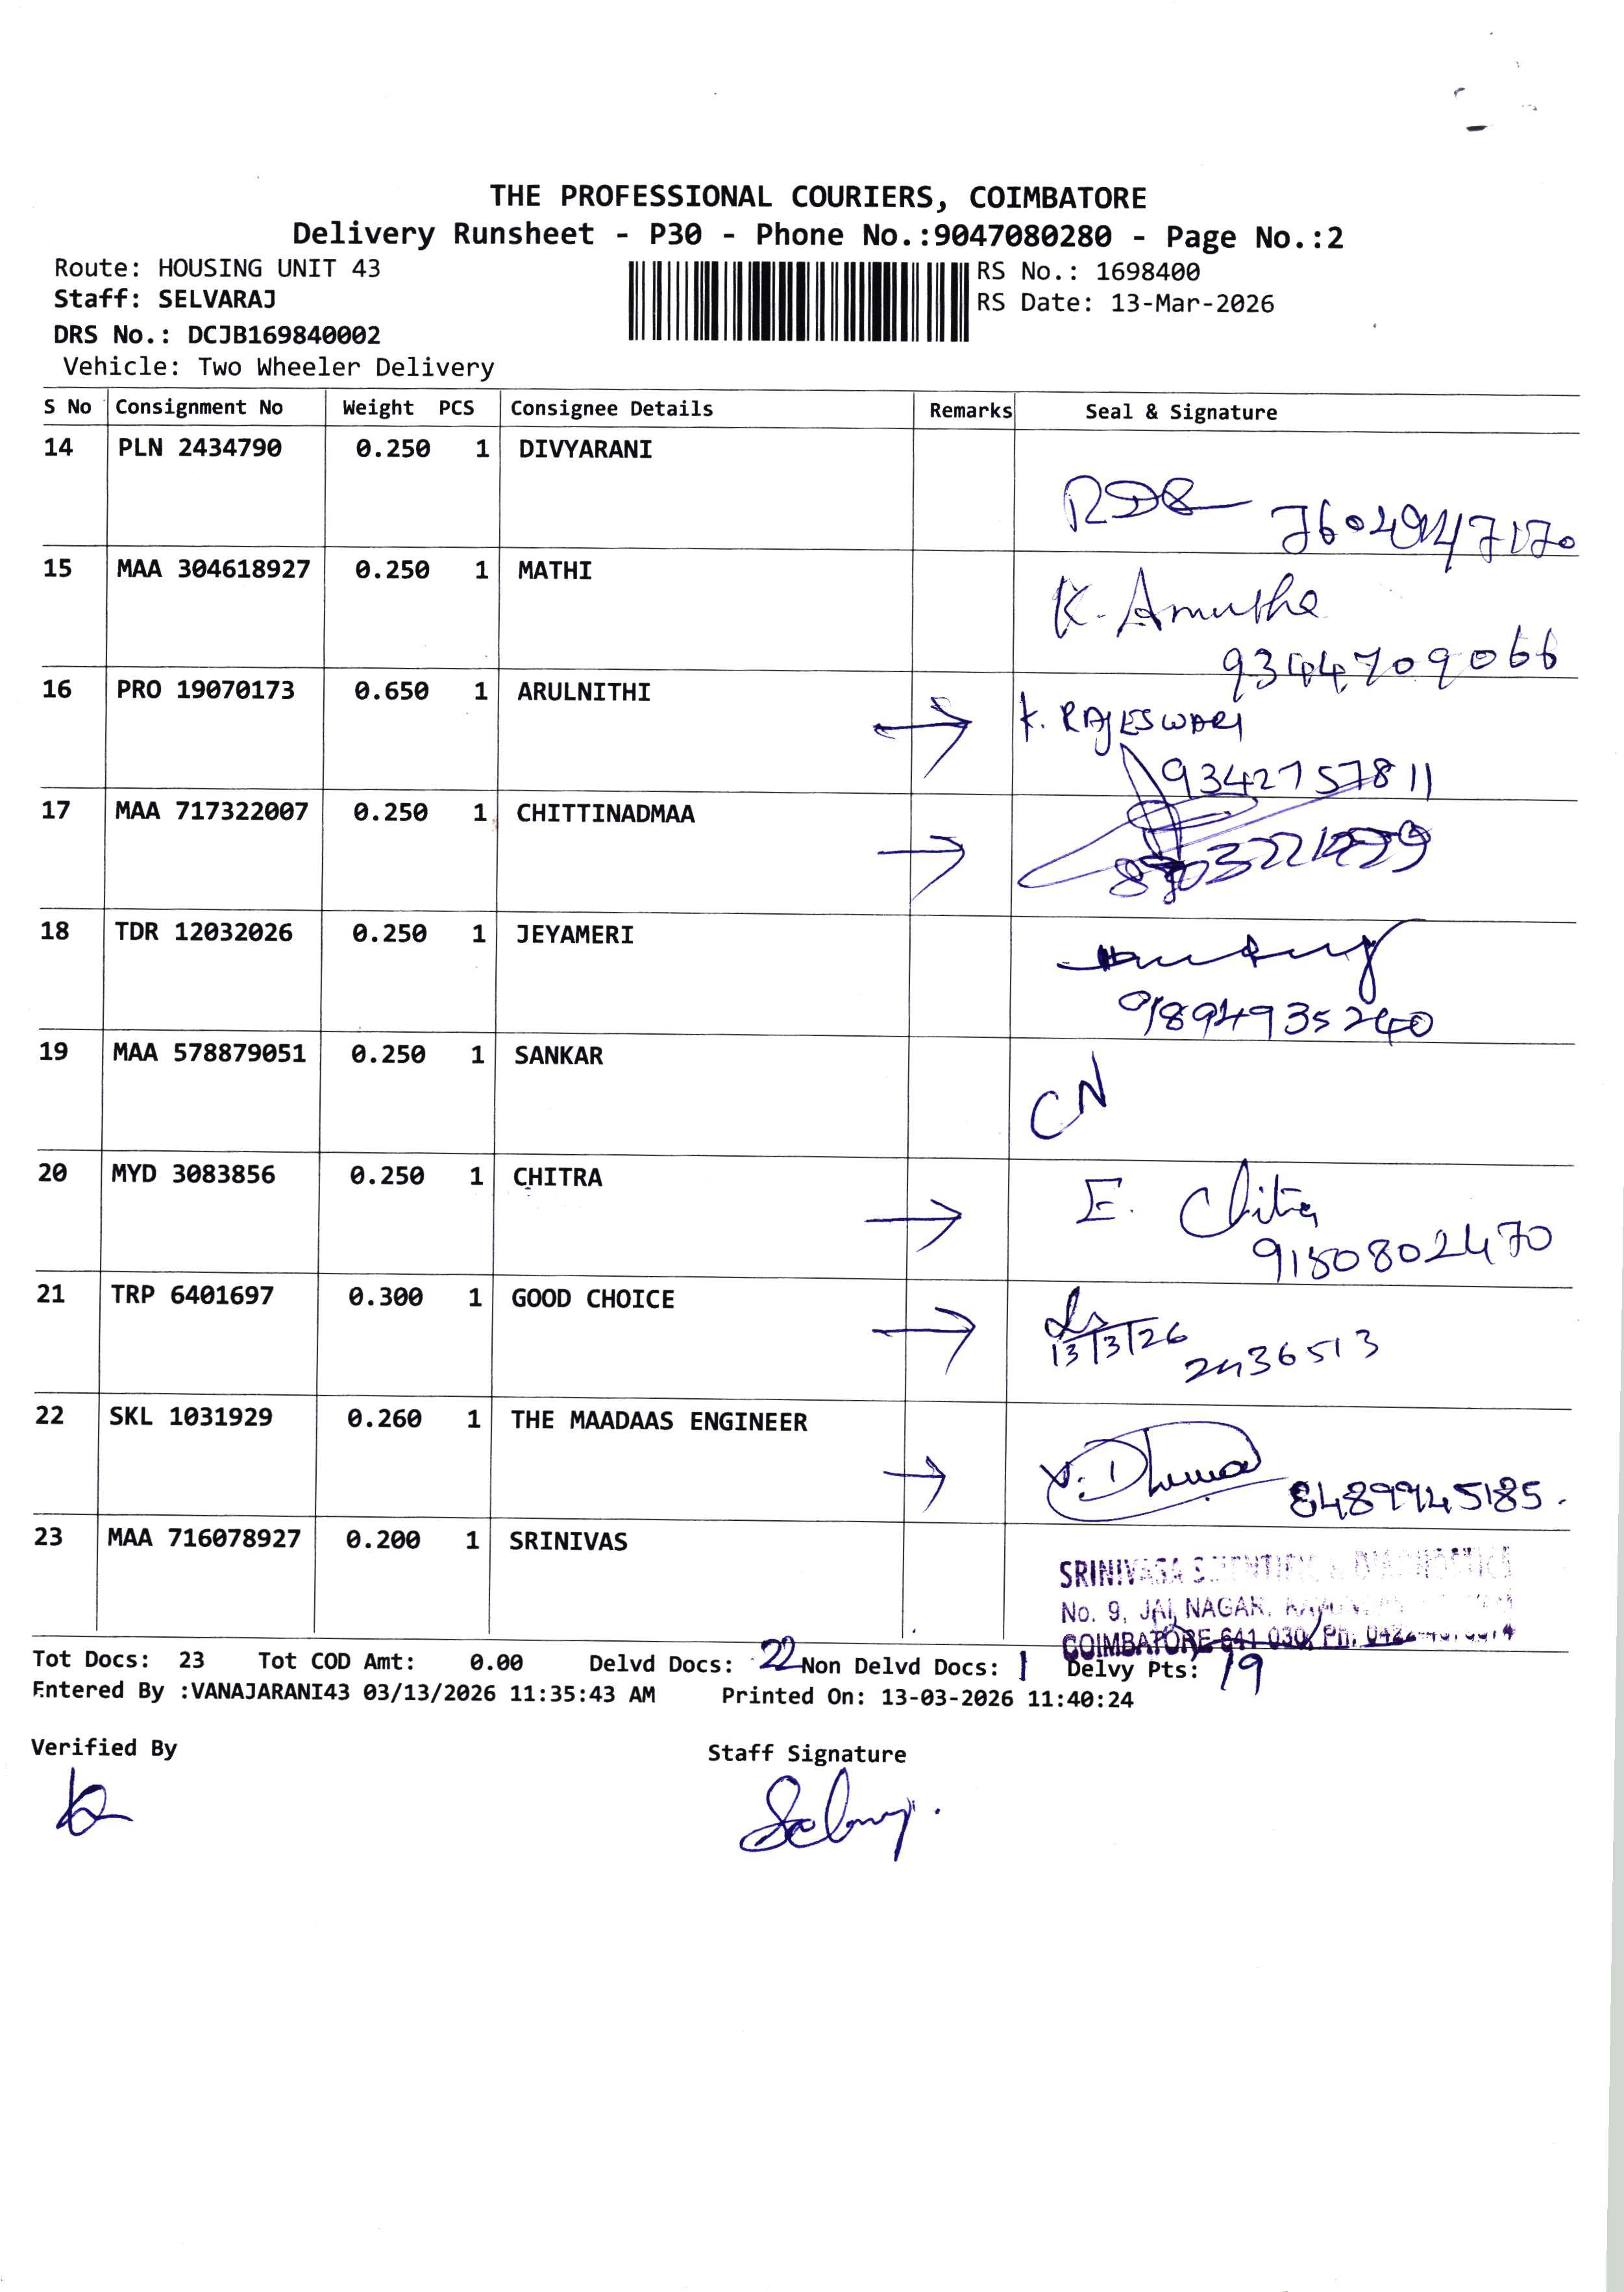 THE PROFESSIONAL COURIERS, COIMBATORE
Delivery Runsheet - P30 - Phone No.:9047080280 - Page No.:2
Route: HOUSING UNIT 43
RS No.: 1698400
Staff: SELVARAJ
RS Date: 13-Mar-2026
DRS No.: DCJB169840002
Vehicle: Two Wheeler Delivery
S No Consignment No Weight PCS Consignee Details Remarks Seal & Signature
14 PLN 2434790 0.250 1 DIVYARANI
15 MAA 304618927 0.250 1 MATHI
K. Amutha
9344709066
16 PRO 19070173 0.650 1 ARULNITHI
K. RAJESWARI
9342757811
17 MAA 717322007 0.250 1 CHITTINADMAA
18 TDR 12032026 0.250 1 JEYAMERI
19 MAA 578879051 0.250 1 SANKAR
CN
20 MYD 3083856 0.250 1 CHITRA
E. Chitra
9150802470
21 TRP 6401697 0.300 1 GOOD CHOICE
13/3/26
2436513
22 SKL 1031929 0.260 1 THE MAADAAS ENGINEER
8489945185.
23 MAA 716078927 0.200 1 SRINIVAS
SRINIVASA SCIENTIFIC & DIAGNOSTICS
No. 9, JAI NAGAR,
COIMBATORE-641 030, Ph:
Tot Docs: 23 Tot COD Amt: 0.00 Delvd Docs: 22 Non Delvd Docs: 1 Delvy Pts: 19
Entered By :VANAJARANI43 03/13/2026 11:35:43 AM Printed On: 13-03-2026 11:40:24
Verified By
Staff Signature